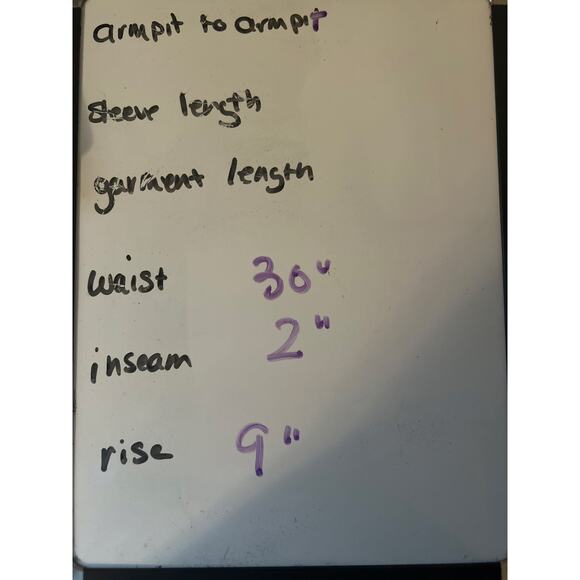 armpit to armpit
sleeve length
garment length
waist 30"
inseam 2"
rise 9"